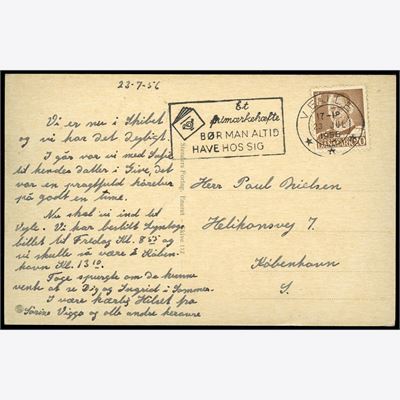 23-7-56
Vi er nu i Skibet
og vi har det dejligt
I går var vi med Sofie
til hendes datter i Give, det
var en pragtfuld køretur
på godt en time.
Nu skal vi ind til
Vejle. Vi har bestilt
billet til Fredag Kl. 8 55 og
vi skulle så være i Køben-
havn Kl. 13 10.
spurgte om de kunne
vente at se Dig og Ingrid i Sommer
I være kærlig Hilset fra
Viggo og alle andre
Et
frimærkehæfte
BØR MAN ALTID
HAVE HOS SIG
VEJLE
17-18
1956
DANMARK
Stenders Forlag Eneret
Herr Paul Nielsen
Helikonsvej 7.
København
S.